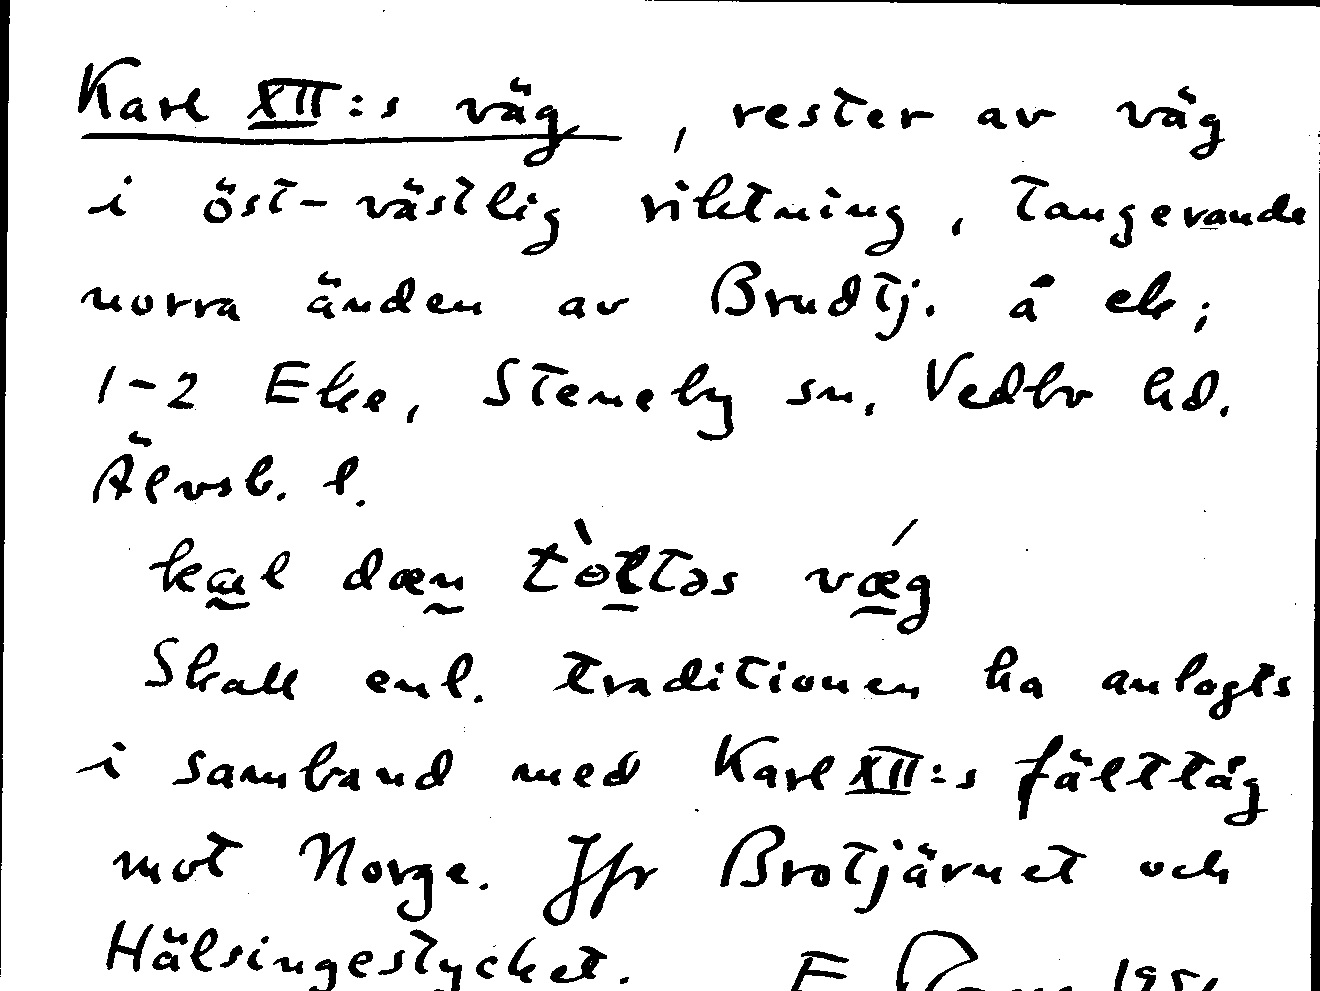 Karl XII:s väg, rester av väg
i öst-västlig riktning, tangerande
norra änden av Brudtj. å ek;
1-2 Eke, Steneby sn, Vedbo hd.
Älvsb. l.
kal dæn tòltəs vǽg
Skall enl. traditionen ha anlagts
i samband med Karl XII:s fälttåg
mot Norge. Jfr Brotjärnet och
Hälsingestycket.